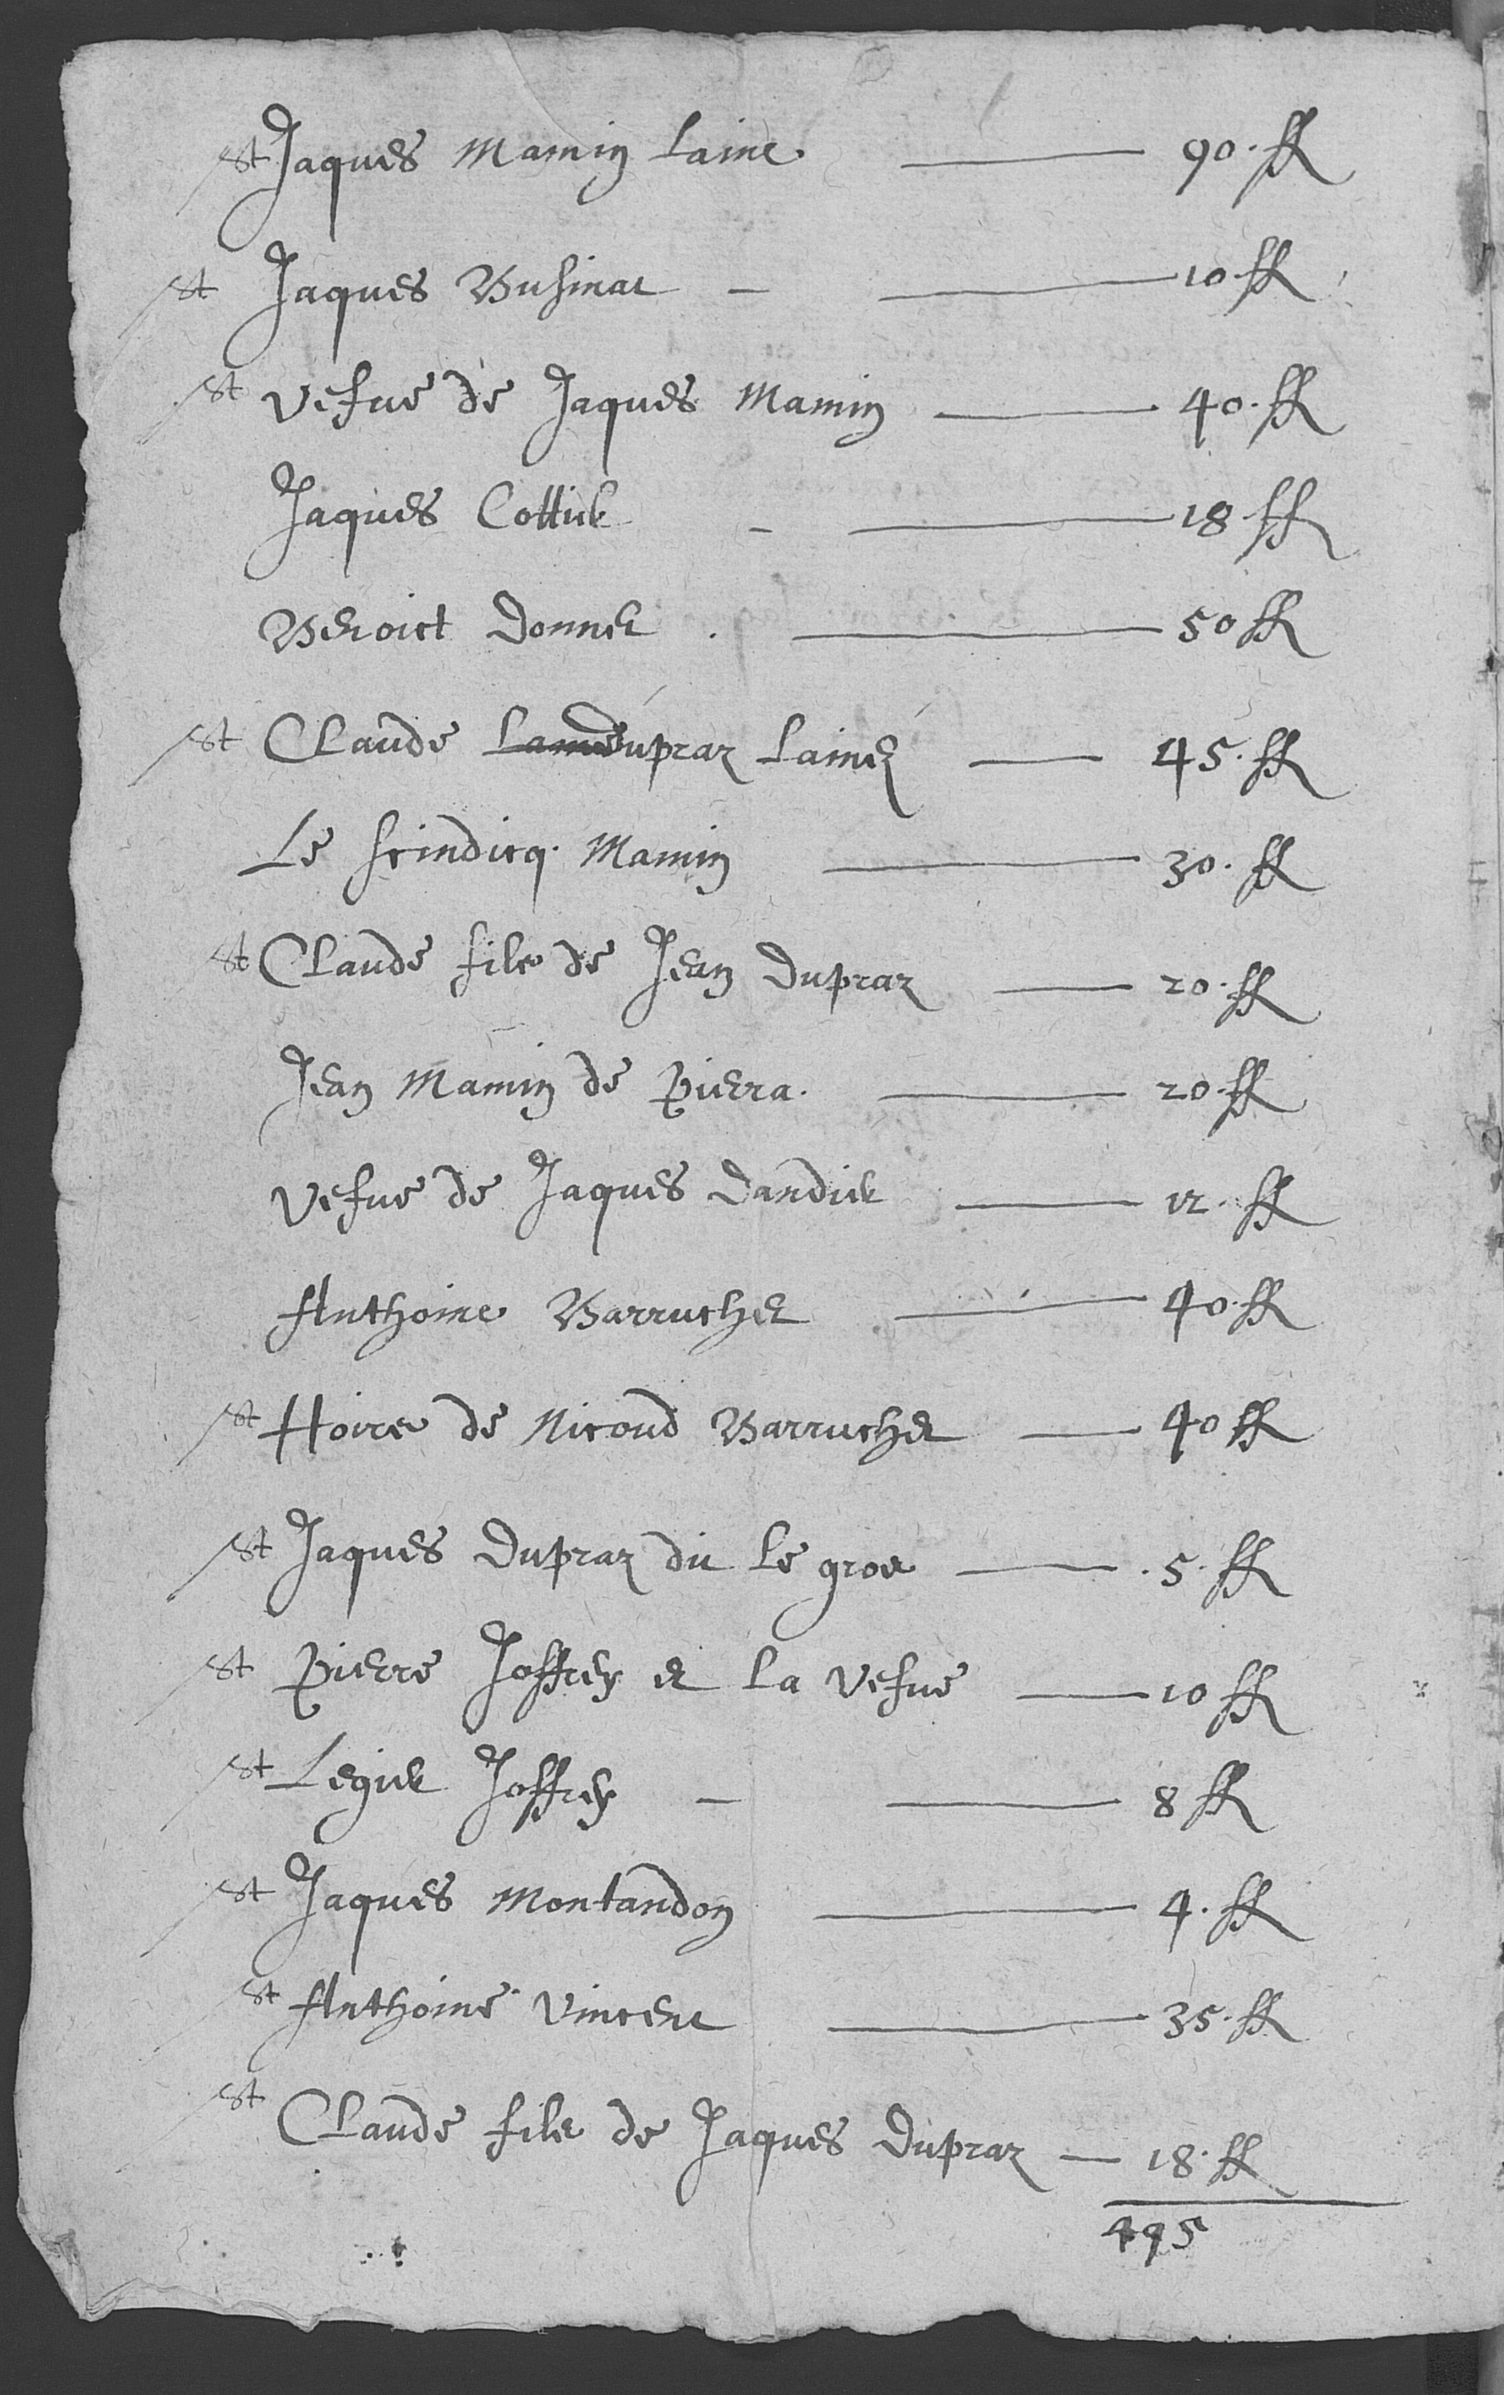 st Jaques Mamin laine 90. ff
st Jaques Businat 10 ff
st vefue de Jaques Mamin 40. ff
Jaques Cottier 18 ff
Benoict Donnet 50 ff
st Claude Lame dupraz laine 45. ff
Le scindicq. Mamin 30. ff
st Claude fils de Jean dupraz 20. ff
Jean Mamin de pierra. 20. ff
vefue de Jaques dandier 12. ff
Anthoine Barruchet 40. ff
st Hoirs de Nicoud Barruchet 40 ff
st Jaques dupraz dit le gros .5. ff
st pierre Joffrey et la vefue 10 ff
st Legier Joffrey 8 ff
st Jaques Montandon 4. ff
st Anthoine vincent 35. ff
st Claude fils de Jaques dupraz 18. ff
495